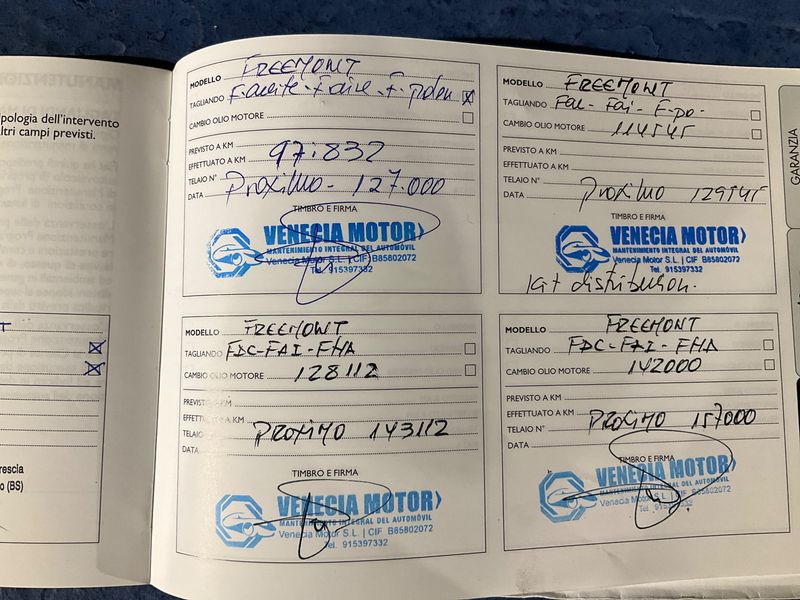 MANUTENZIO
pologia dell'intervento
ltri campi previsti.
MODELLO FREEMONT
TAGLIANDO F-aceite-F-aire-F-polen
CAMBIO OLIO MOTORE
PREVISTO A KM
EFFETTUATO A KM 97:832
TELAIO N°
DATA Proximo - 127.000
TIMBRO E FIRMA
VENECIA MOTOR
MANTENIMIENTO INTEGRAL DEL AUTOMÓVIL
Venecia Motor S.L. | CIF B85802072
Tel. 915397332
MODELLO FREEMONT
TAGLIANDO Fac- Fai- F-po-
CAMBIO OLIO MOTORE 114545
PREVISTO A KM
EFFETTUATO A KM
TELAIO N°
DATA Proximo 129545
TIMBRO E FIRMA
VENECIA MOTOR
MANTENIMIENTO INTEGRAL DEL AUTOMÓVIL
Venecia Motor S.L. | CIF B85802072
Tel. 915397332
Kit distribucion.
MODELLO FREEMONT
TAGLIANDO FAC-FAI-FHA
CAMBIO OLIO MOTORE 128112
PREVISTO A KM
EFFETTUATO A KM
TELAIO PROXIMO 143112
DATA
TIMBRO E FIRMA
VENECIA MOTOR
MANTENIMIENTO INTEGRAL DEL AUTOMÓVIL
Venecia Motor S.L. | CIF B85802072
Tel. 915397332
MODELLO FREEMONT
TAGLIANDO FAC-FAI-FHA
CAMBIO OLIO MOTORE 142000
PREVISTO A KM
EFFETTUATO A KM
TELAIO N° PROXIMO 157000
DATA
TIMBRO E FIRMA
VENECIA MOTOR
MANTENIMIENTO INTEGRAL DEL AUTOMÓVIL
Venecia Motor S.L. | CIF B85802072
Tel. 915397332
rescia
o (BS)
GARANZIA